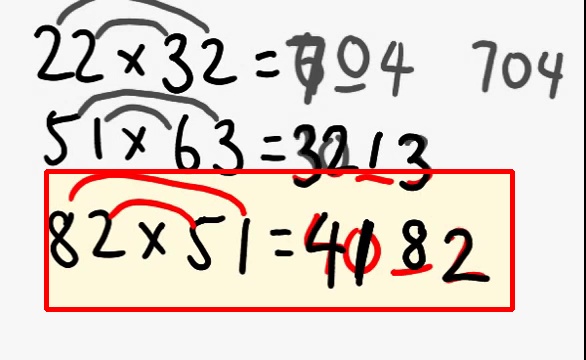 22 x 32 = 704 704
51 x 63 = 3213
82 x 51 = 4182